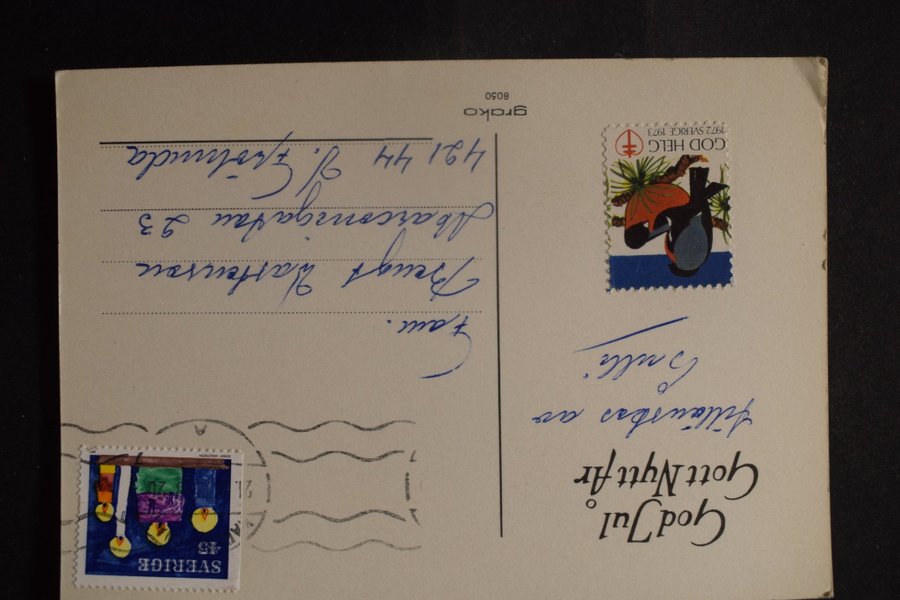 God Jul
Gott Nytt År
tillönskas av
GOD HELG
1972 SVERIGE 1973
SVERIGE
45
Fam.
Bengt
Marconigatan 23
421 44 V. Frölunda
grako
8050